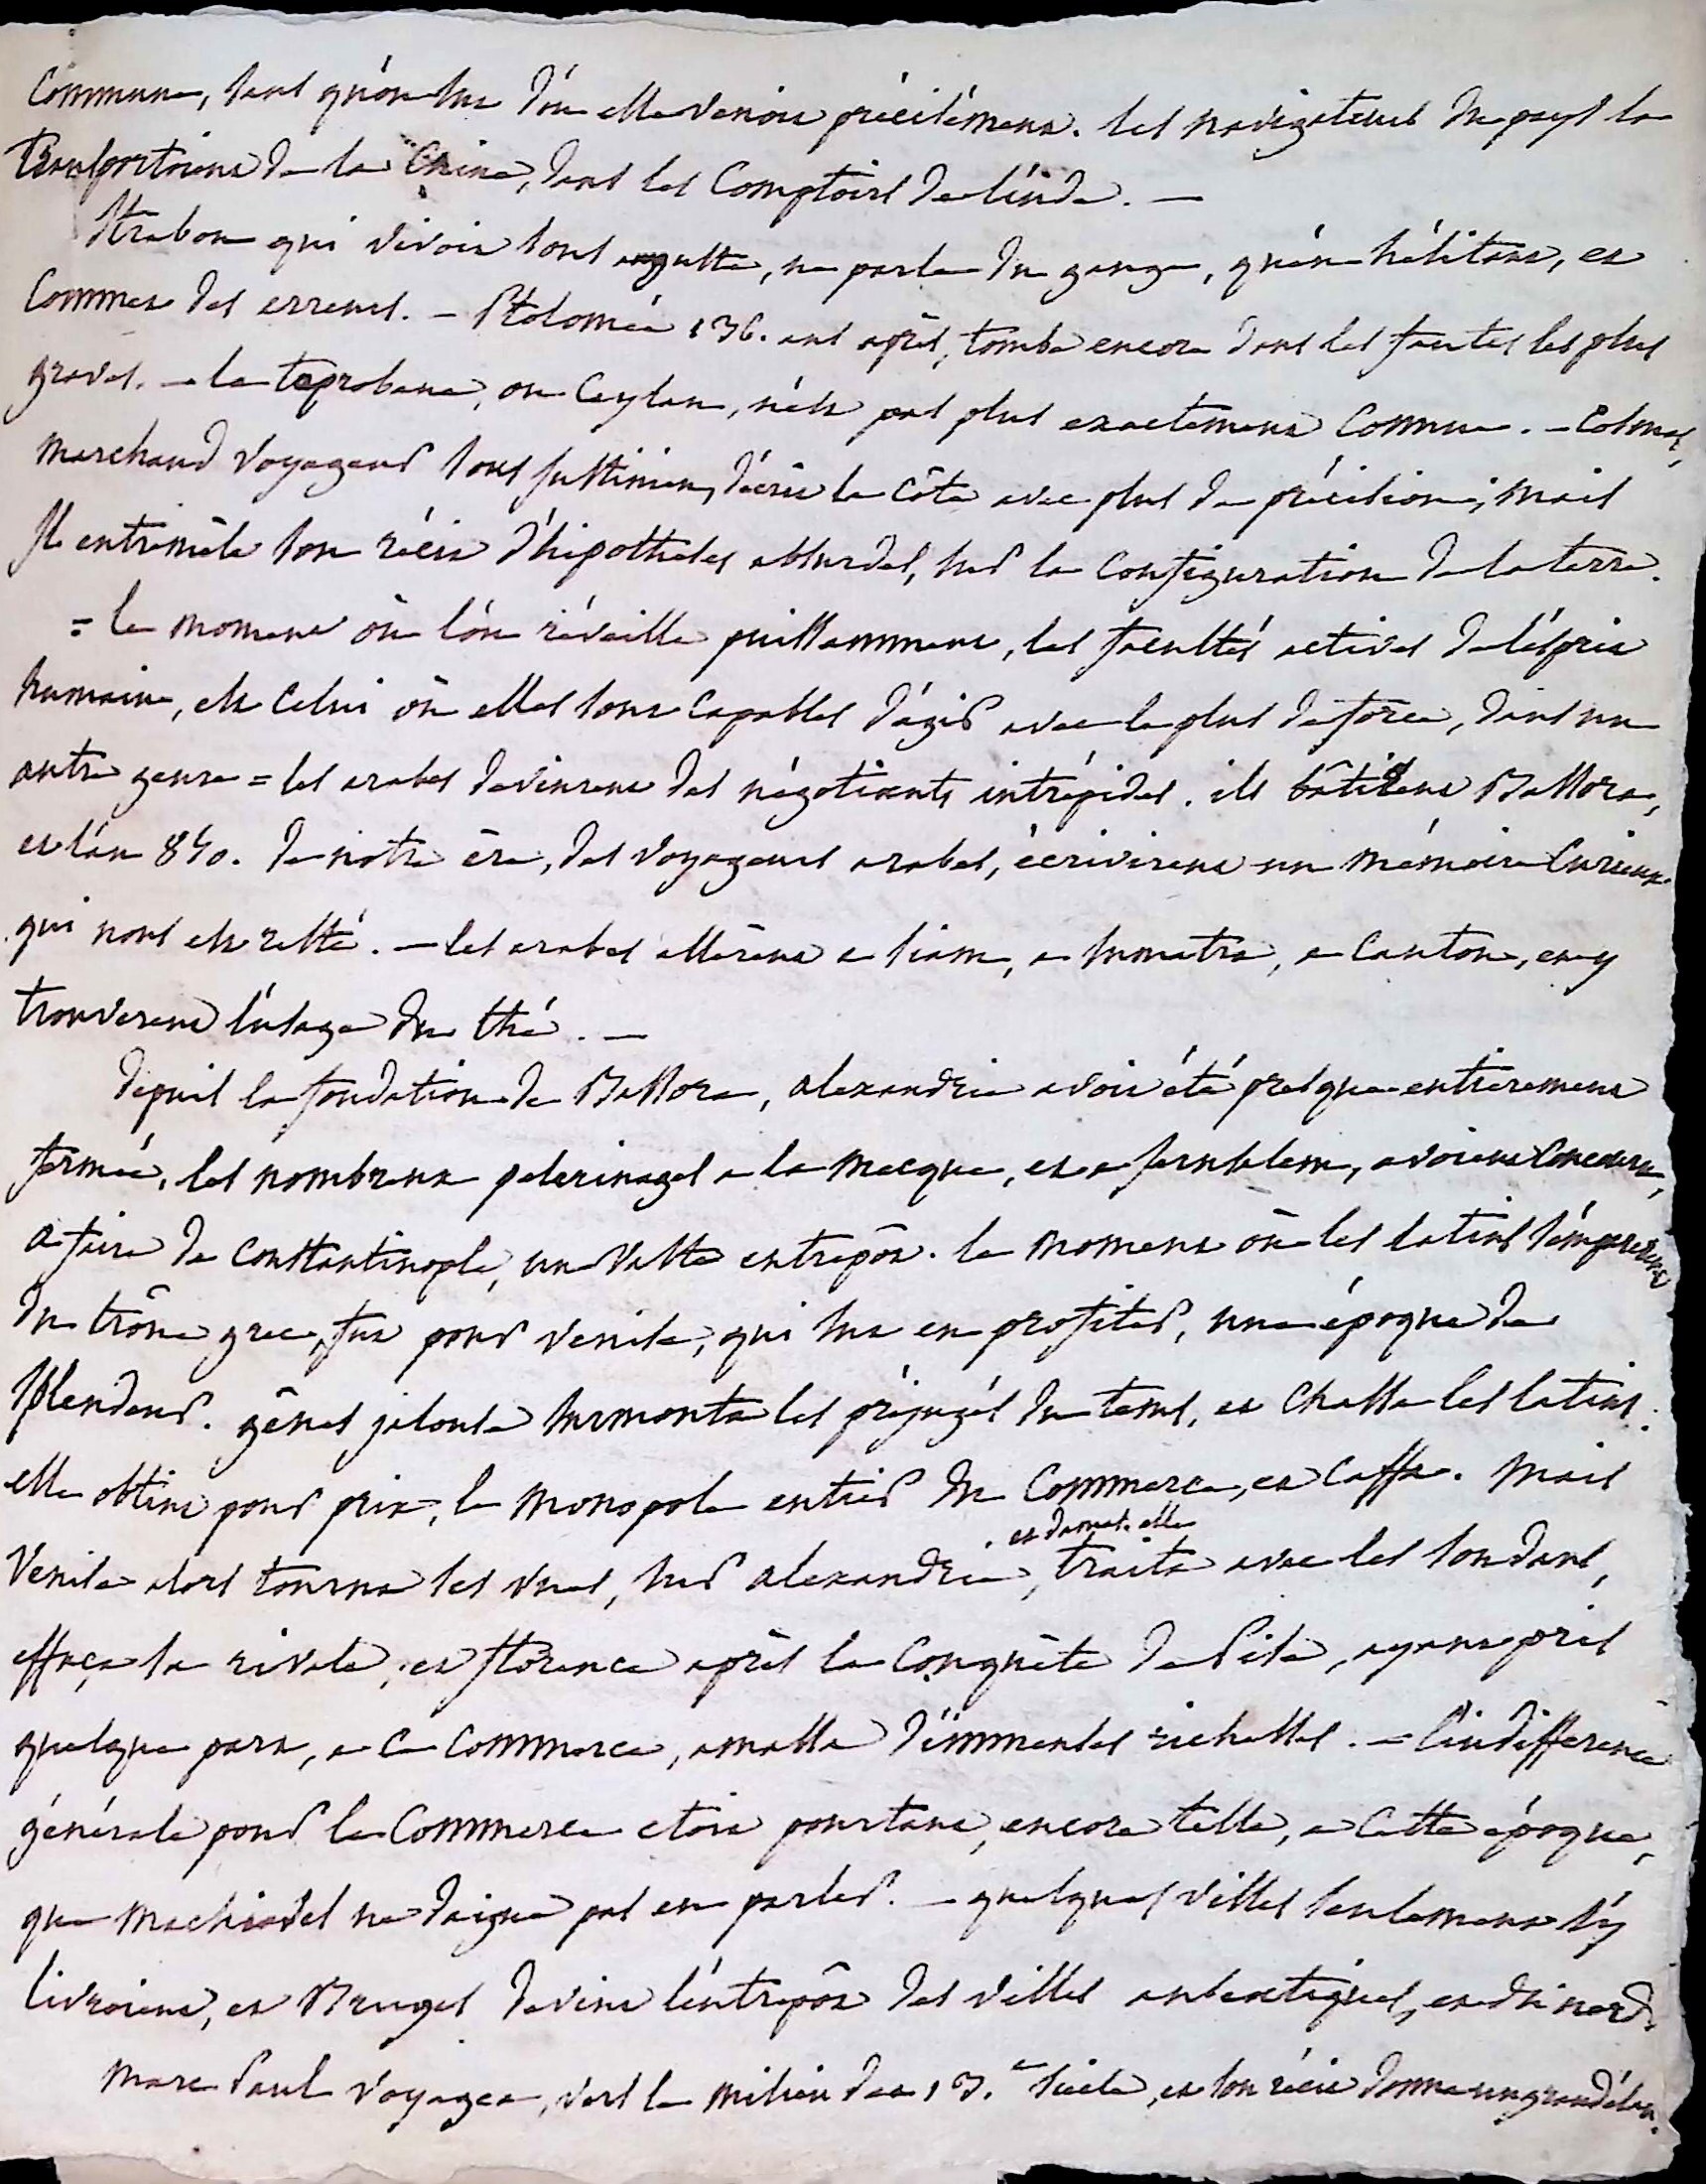 Commune, sans qu'on sut d'où elle venoit précisément. les navigateurs du pays la
transportoient de la Chine, dans les Comptoirs de l'inde. —
Strabon qui vivoit sous auguste, ne parle du gange, qu'en hésitant, et
Commet des erreurs. — Ptolomée 136. ans après, tombe encore dans les fautes les plus
graves. — la taprobane, ou Ceylan, n'est pas plus exactement Connue. — Cosmas,
marchand voyageur sous justinien, décrit la côte avec plus de précision; mais
Il entremêle son récit d'hipothèses absurdes, sur la Configuration de la terre.
= le moment où l'on réveille puissamment, les facultés actives de l'esprit
humain, est Celui où elles sont Capables d'agir avec le plus de force, dans un
autre genre = les arabes devinrent des négotiants intrépides. ils bâtirent Bassora,
et l'an 840. de notre ère, des voyageurs arabes, écrivirent un mémoire Curieux
qui nous est resté. — les arabes allèrent a siam, a sumatra, a Canton, et y
trouverent l'usage du thé. —
depuis la fondation de Bassora, alexandrie avoit été presque entierement
fermée, les nombreux pelerinages a la mecque, et a jerusalem, avoient Concouru,
a faire de Constantinople, un vaste entrepôt. le moment où les latins s'emparerent
du trône grec, fut pour venise, qui sut en profiter, une époque de
splendeur. gênes jalouse surmonta les préjugés du tems, et Chassa les latins.
elle obtint pour prix, le monopole entier du Commerce, et Caffa. mais
et damas. elle
Venise alors tourna ses vues, sur alexandrie, traita avec les soudans,
effaça sa rivale, et florence après la Conquête de Pise, ayant pris
quelque part, a ce Commerce, amassa d'immenses richesses. — l'indifférence
générale pour le Commerce etoit pourtant, encore telle, a Cette époque,
que machiavel ne daigne pas en parler. — quelques villes seulement s'y
livroient, et Bruges devint l'entrepôt des villes anséatiques, et du nord.
marc Paul voyagea, vers le milieu du 13.e siècle, et son récit donna un grand élan.